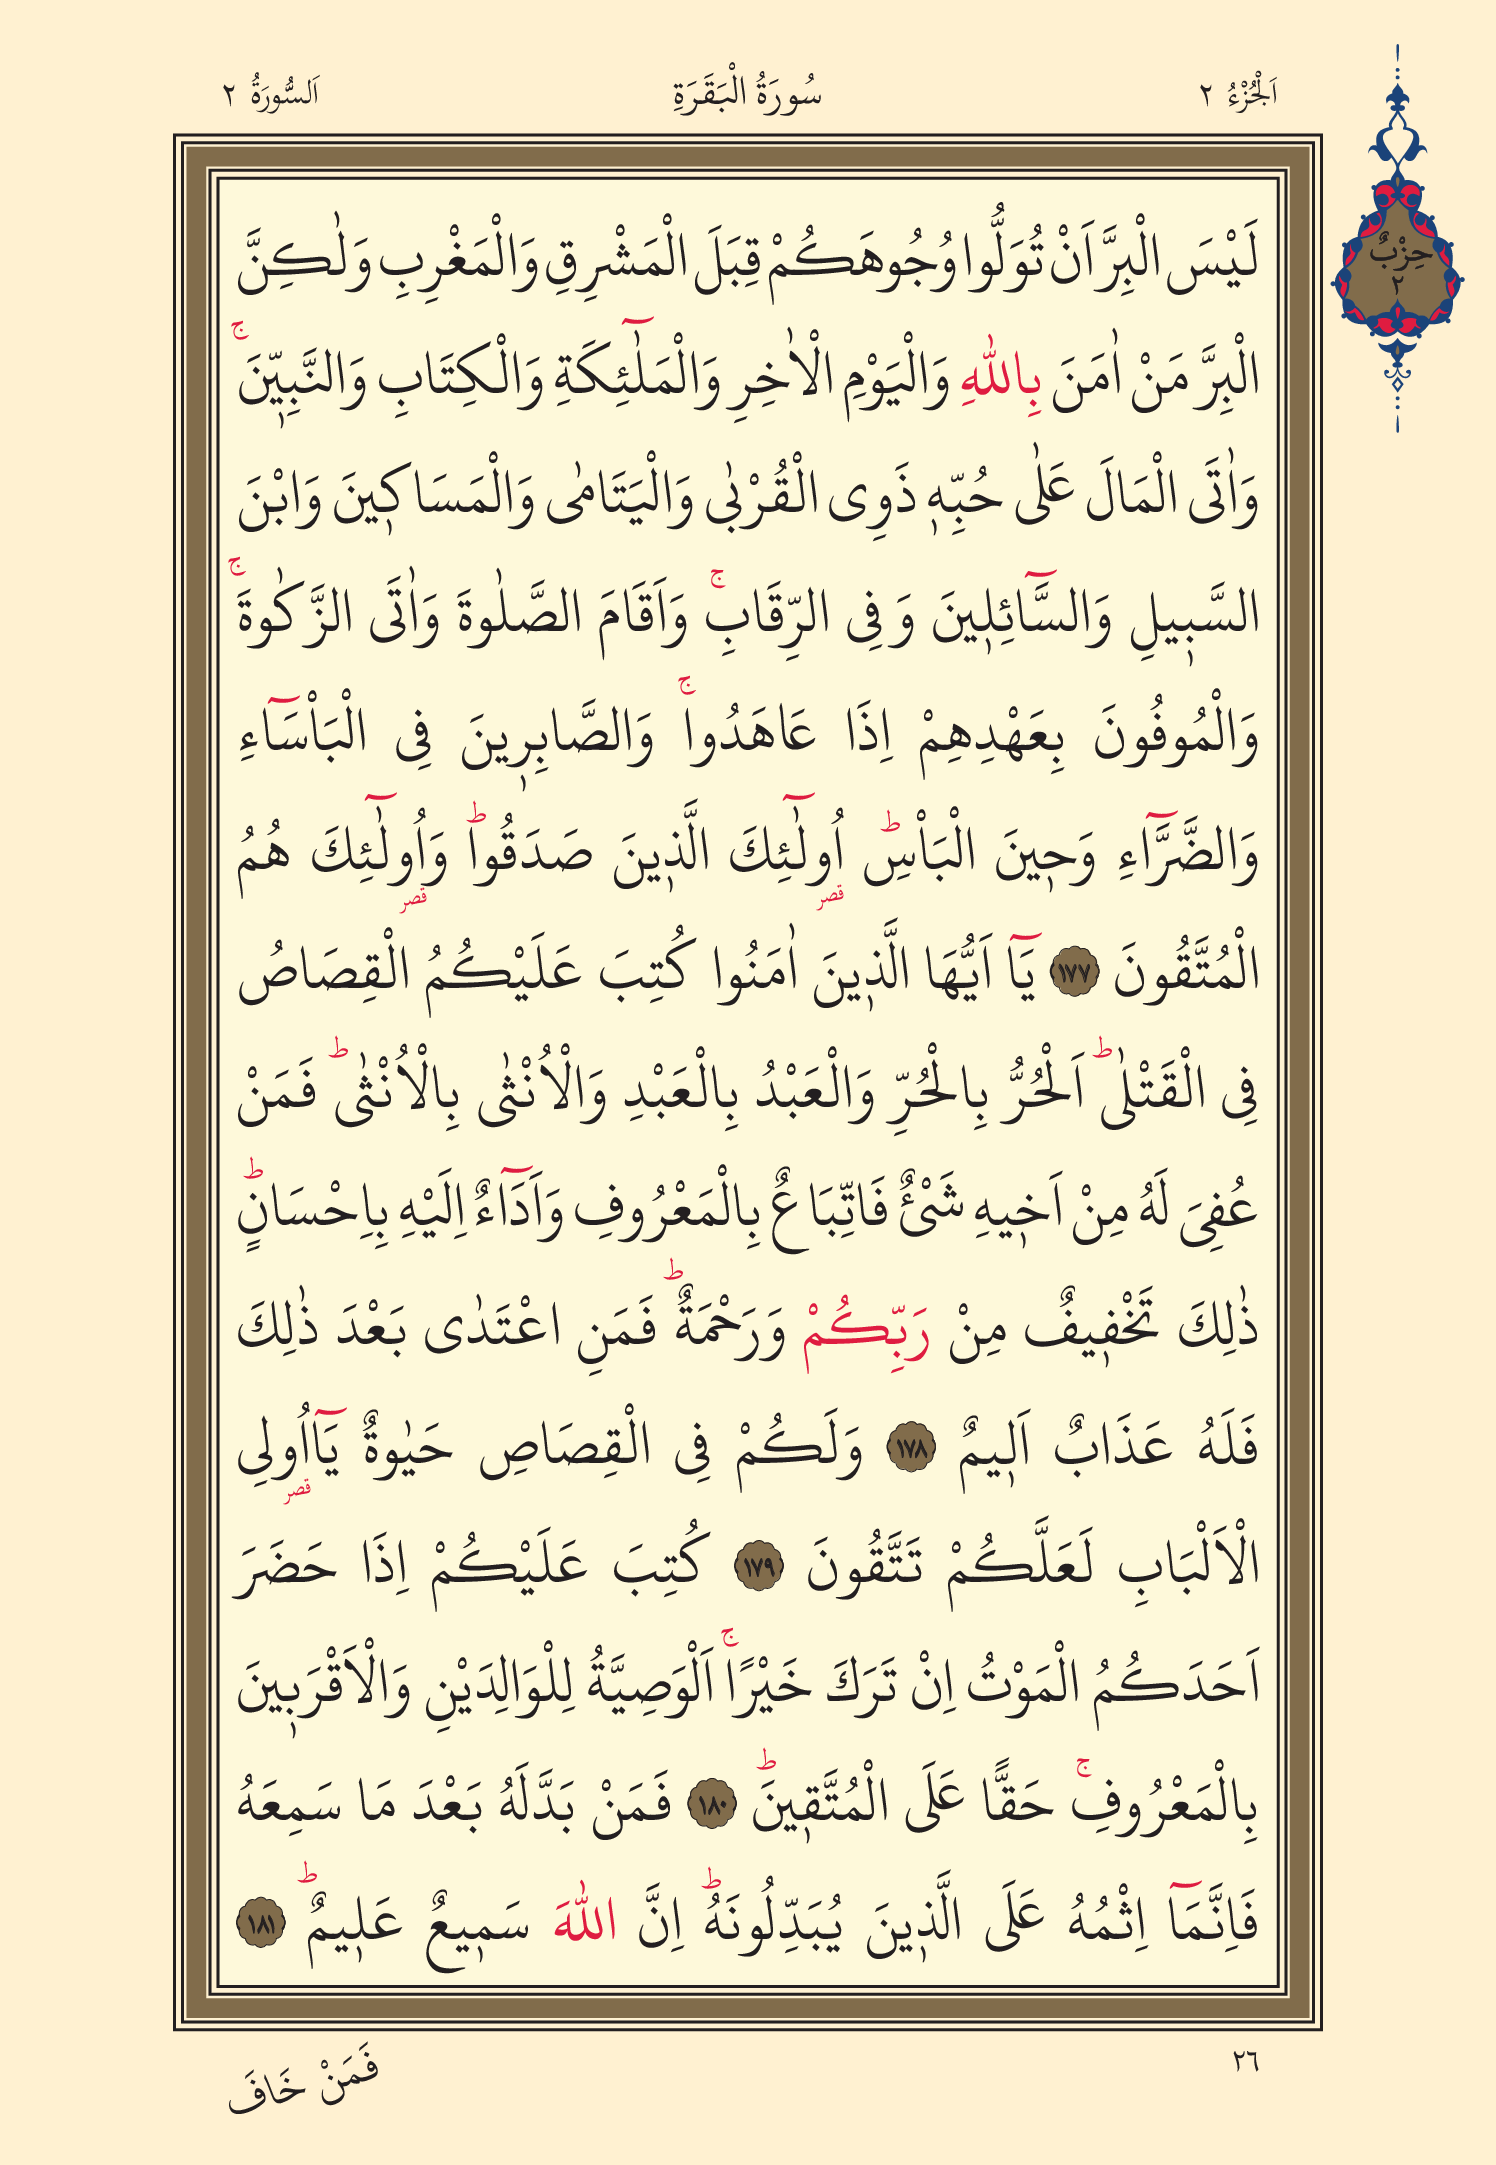 اَلْجُزْءُ ٢
سُورَةُ الْبَقَرَةِ
اَلسُّورَةُ ٢
حِزْبٌ
٢
لَيْسَ الْبِرَّ اَنْ تُوَلُّوا وُجُوهَكُمْ قِبَلَ الْمَشْرِقِ وَالْمَغْرِبِ وَلٰكِنَّ
الْبِرَّ مَنْ اٰمَنَ بِاللّٰهِ وَالْيَوْمِ الْاٰخِرِ وَالْمَلٰٓئِكَةِ وَالْكِتَابِ وَالنَّبِيّٖنَۚ
وَاٰتَى الْمَالَ عَلٰى حُبِّهٖ ذَوِى الْقُرْبٰى وَالْيَتَامٰى وَالْمَسَاكٖينَ وَابْنَ
السَّبٖيلِ وَالسَّٓائِلٖينَ وَفِى الرِّقَابِۚ وَاَقَامَ الصَّلٰوةَ وَاٰتَى الزَّكٰوةَۚ
وَالْمُوفُونَ بِعَهْدِهِمْ اِذَا عَاهَدُواۚ وَالصَّابِرٖينَ فِى الْبَاْسَٓاءِ
وَالضَّرَّٓاءِ وَحٖينَ الْبَاْسِؕ اُولٰٓئِكَ الَّذٖينَ صَدَقُواؕ وَاُولٰٓئِكَ هُمُ
قصر قصر
الْمُتَّقُونَ ١٧٧ يَٓا اَيُّهَا الَّذٖينَ اٰمَنُوا كُتِبَ عَلَيْكُمُ الْقِصَاصُ
فِى الْقَتْلٰىؕ اَلْحُرُّ بِالْحُرِّ وَالْعَبْدُ بِالْعَبْدِ وَالْاُنْثٰى بِالْاُنْثٰىؕ فَمَنْ
عُفِىَ لَهُ مِنْ اَخٖيهِ شَىْءٌ فَاتِّبَاعٌ بِالْمَعْرُوفِ وَاَدَٓاءٌ اِلَيْهِ بِاِحْسَانٍؕ
ذٰلِكَ تَخْفٖيفٌ مِنْ رَبِّكُمْ وَرَحْمَةٌؕ فَمَنِ اعْتَدٰى بَعْدَ ذٰلِكَ
فَلَهُ عَذَابٌ اَلٖيمٌ ١٧٨ وَلَكُمْ فِى الْقِصَاصِ حَيٰوةٌ يَٓااُولِى
قصر
الْاَلْبَابِ لَعَلَّكُمْ تَتَّقُونَ ١٧٩ كُتِبَ عَلَيْكُمْ اِذَا حَضَرَ
اَحَدَكُمُ الْمَوْتُ اِنْ تَرَكَ خَيْرًاۚ اَلْوَصِيَّةُ لِلْوَالِدَيْنِ وَالْاَقْرَبٖينَ
بِالْمَعْرُوفِۚ حَقًّا عَلَى الْمُتَّقٖينَؕ ١٨٠ فَمَنْ بَدَّلَهُ بَعْدَ مَا سَمِعَهُ
فَاِنَّمَٓا اِثْمُهُ عَلَى الَّذٖينَ يُبَدِّلُونَهُؕ اِنَّ اللّٰهَ سَمٖيعٌ عَلٖيمٌؕ ١٨١
٢٦
فَمَنْ خَافَ